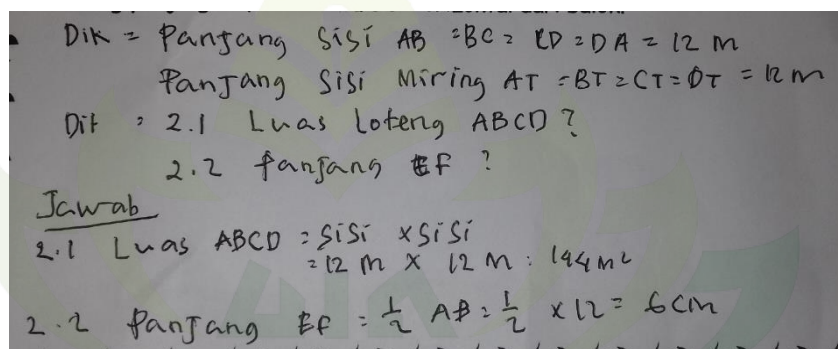 Dik = Panjang Sisi AB = BC = CD = DA = 12 m
Panjang Sisi Miring AT = BT = CT = DT = 12 m
Dit : 2.1 Luas Loteng ABCD ?
2.2 Panjang EF ?
Jawab
2.1 Luas ABCD = Sisi x Sisi
= 12 m x 12 m = 144 m²
2.2 Panjang EF = 1/2 AB = 1/2 x 12 = 6 cm